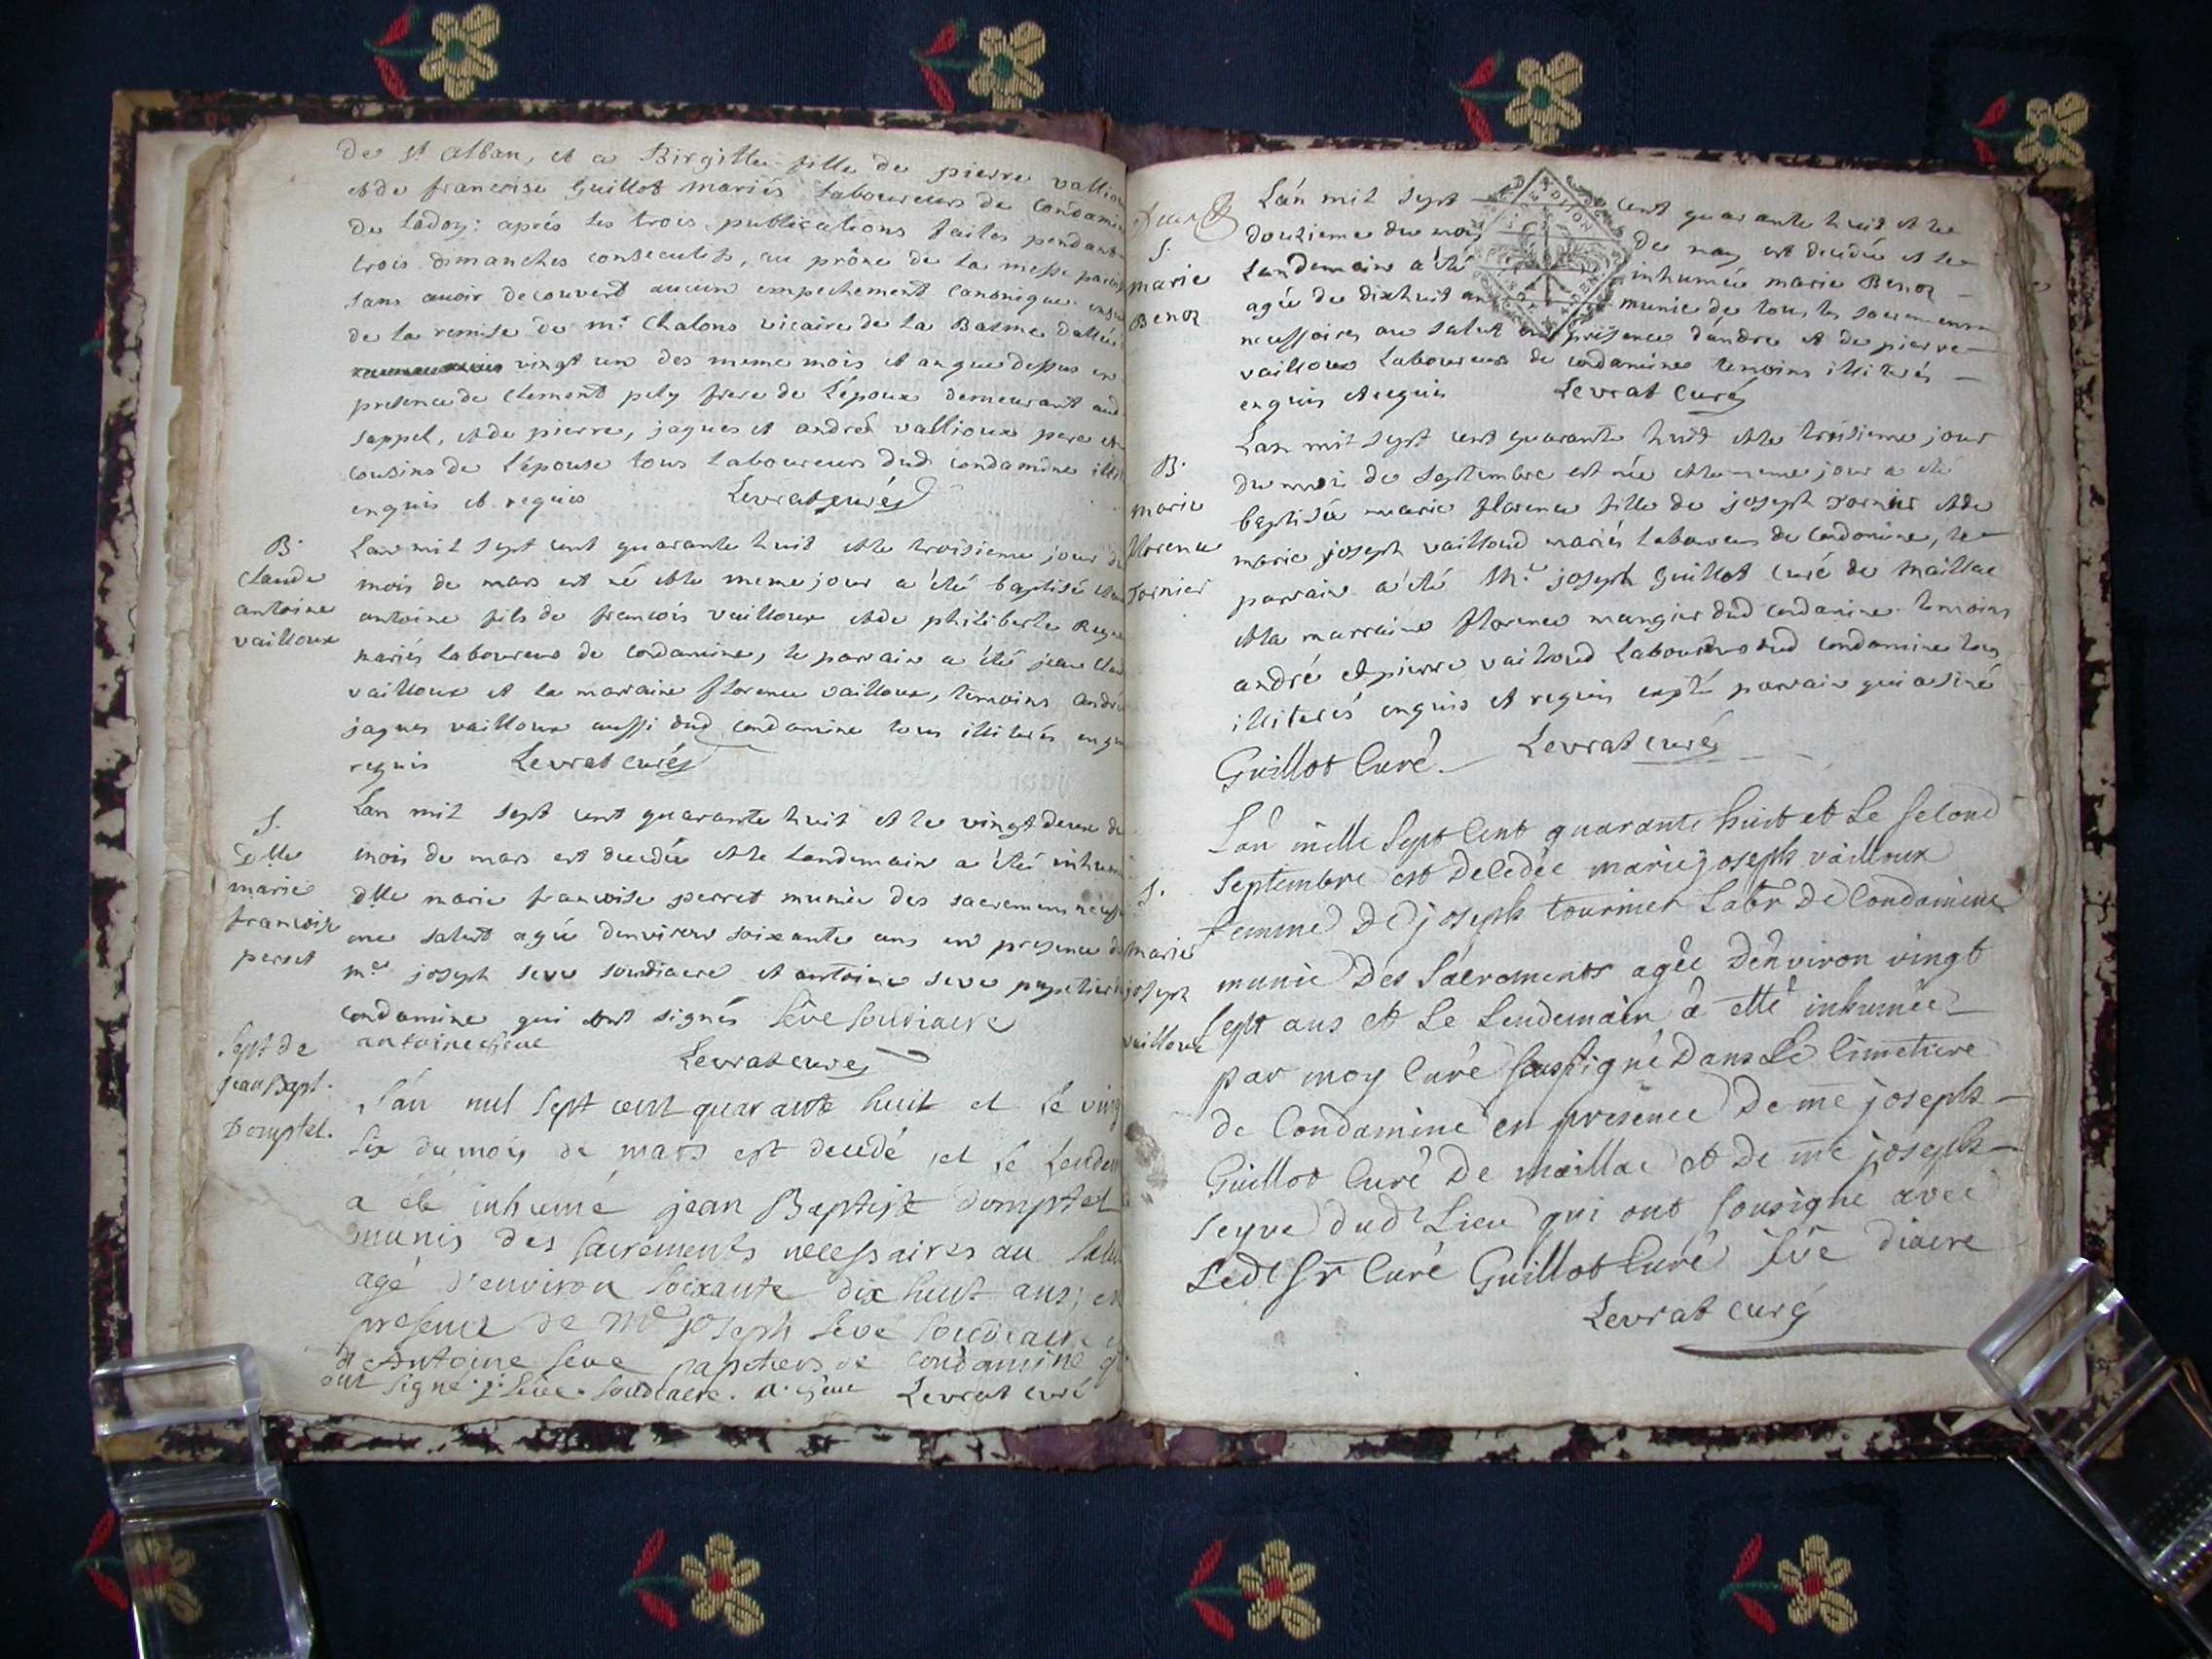 de st alban, et a Birgitte fille de pierre vallioux
et de francoise Guillot mariés laboureurs de Condamine
de Ladoy: aprés les trois publications faites pendant
trois dimanches consecutifs, au prône de la messe
sans avoir decouvert aucun empechement canonique
de la remise de mr Chalons vicaire de la Balme
vingt un des meme mois et an que dessus en
presence de Clement pely frere de l'époux demeurant
sappel, et de pierre, jaques et andré vallioux pere et
cousins de l'épouse tous laboureurs dud condamine
enquis et requis Levrat curé
B.
Claude
antoine
vailloux
Lan mil sept cent quarante huit et le troisieme jour du
mois de mars est né et le meme jour a été baptisé
antoine fils de francois vailloux et de philiberte
mariés laboureurs de condamine, le parrain a été jean
vailloux et la marraine florence vailloux, temoins andré
jaques vailloux aussi dud condamine tous illiterés
requis Levrat curé
S.
delle
marie
francoise
perret
Lan mil sept cent quarante huit et le vingt deux du
mois de mars est decedée et le landemain a été
dlle marie francoise perret munie des sacremens
au salut agée denviron soixante ans en presence de
me joseph seve soudiacre et antoine seve papetier
condamine qui ont signés Seve soudiacre
antoine seve Levrat curé
Sept de
jean Bapt.
Domptet.
L'an mil sept cent quarante huit et le vingt
six du mois de mars est decedé et le
a été inhumé jean Baptiste Domptet
munis des sacrements necessaires au salut
agé d'environ soixante dix huit ans, en
presence de Me joseph seve soudiacre et
d'Antoine seve papetiers de condamine
ont signé. j. seve. soudiacre. a. seve Levrat curé
S.
marie
Benoz
L'an mil sept cent quarante huit et le
douzieme du mois de may est decedée et le
landemain a été inhumée marie Benoz
agée de dixhuit ans munie de tous les sacremens
necessaires au salut en presence d'andre et de pierre
vailloux laboureurs de condamine temoins illiterés
enquis et requis Levrat curé
B.
marie
florence
Tornier
Lan mil sept cent quarante huit et le troisieme jour
du mois de septembre est née et le meme jour a été
baptisée marie florence fille de joseph Tornier et de
marie joseph vailloud mariés laboureurs de condamine, le
parrain a été Me joseph Guillot curé de maillac
et la marraine florence mangier dud condamine temoins
andré et pierre vailloud laboureurs dud condamine tous
illiterés enquis et requis parrain qui a siné
Guillot Curé Levrat curé
S.
marie
joseph
vailloux
L'an mille sept cent quarante huit et le second
septembre est decedée marie joseph vailloux
femme de joseph tournier labr de Condamine
munie des sacrements agée d'environ vingt
sept ans et le lendemain a etté inhumée
par moy curé soussigné dans le cimetiere
de Condamine en presence de me joseph
Guillot curé de maillac et de me joseph
seyve dud lieu qui ont sousigné avec
led sr curé Guillot Curé Seve diacre
Levrat curé